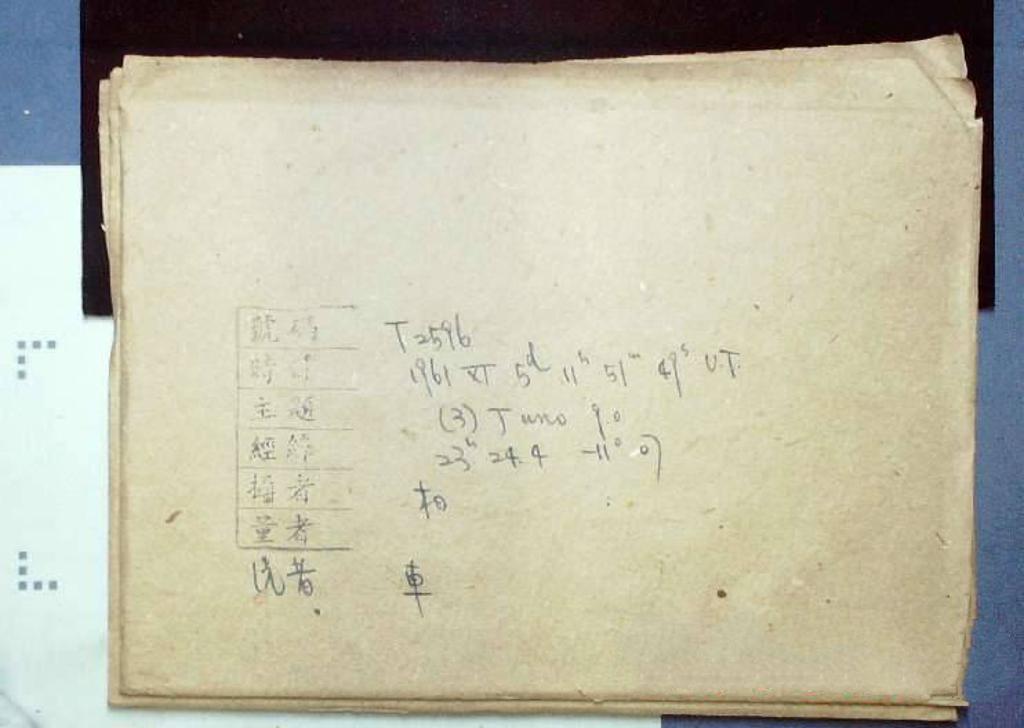 號碼 T2596
時 1961 XI 5d 11h 51m 49s U.T.
主題 (3) Juno 9.0
經緯 23h 24.4 -11° 07
攝者 相
量者
洗者 車